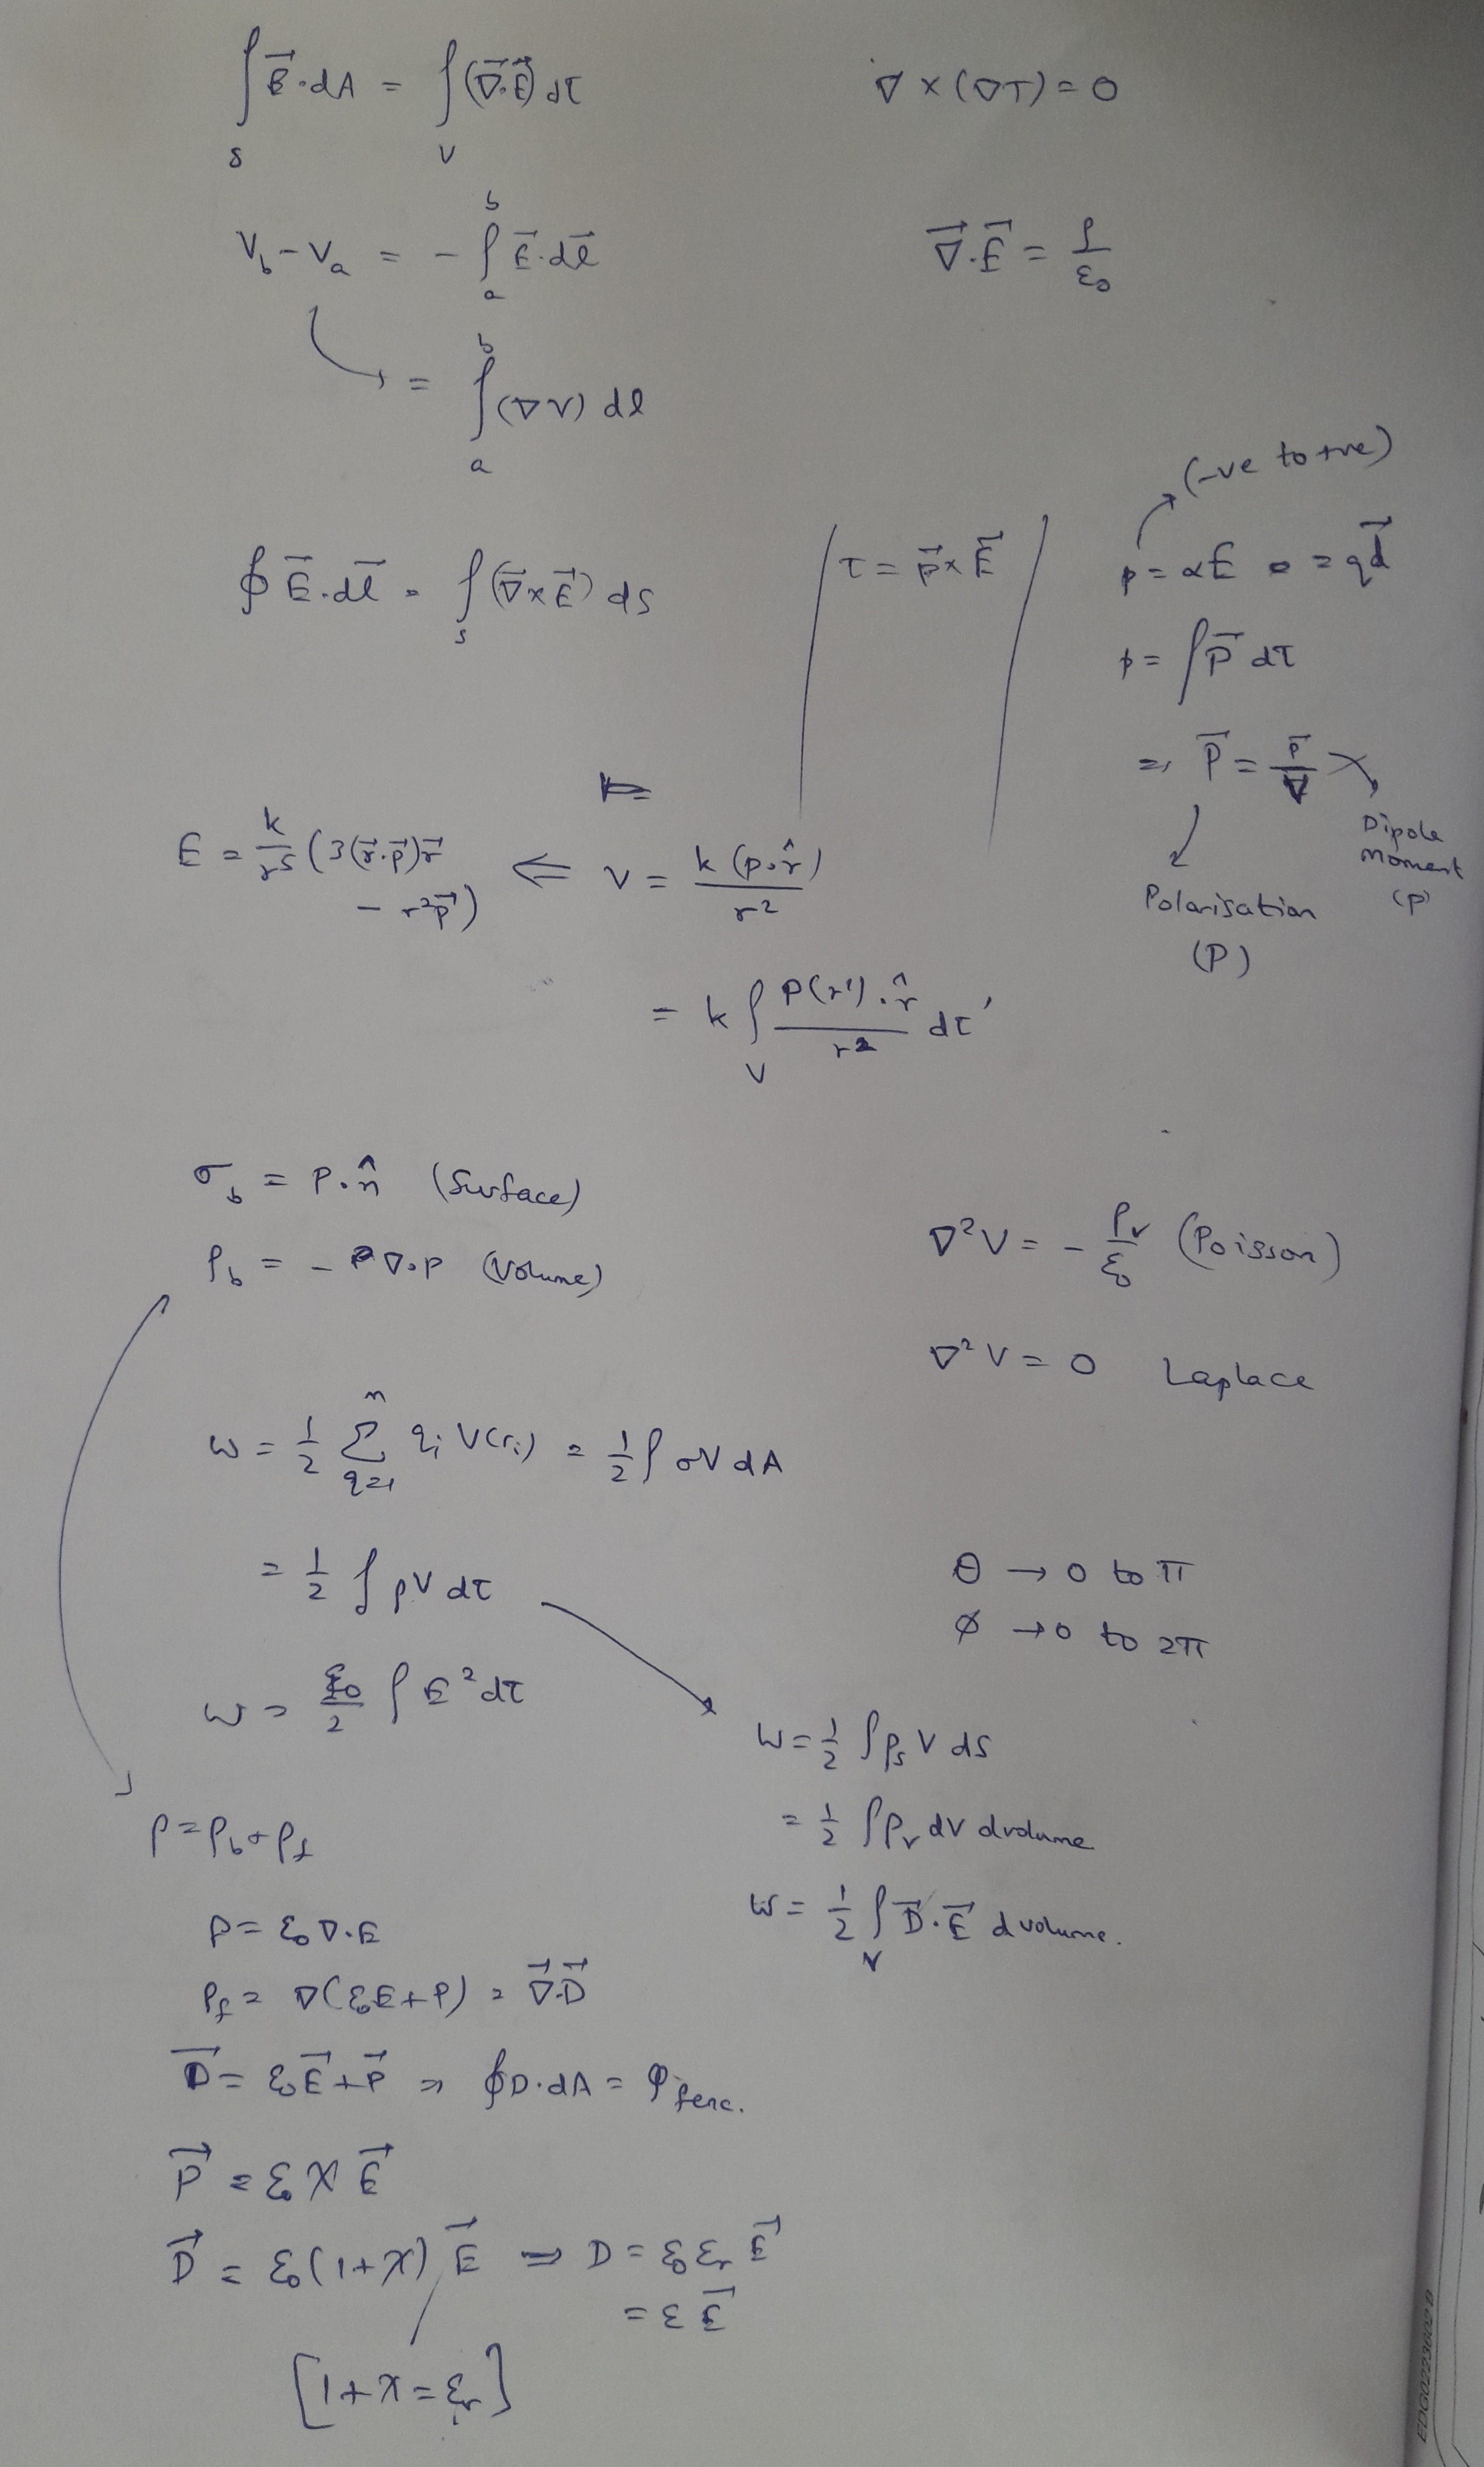 ∫_S E⃗·dA = ∫_V (∇⃗·E⃗) dτ
∇ × (∇T) = 0
V_b - V_a = - ∫_a^b E⃗·dl⃗
∇⃗·E⃗ = ρ/ε₀
= ∫_a^b (∇V) dl
∮ E⃗·dl⃗ = ∫_S (∇⃗×E⃗) ds
τ = p⃗×E⃗
(-ve to +ve)
p = αE = qd⃗
p = ∫ P⃗ dτ
⇒ P⃗ = p⃗/V
Dipole
Moment
(p)
Polarisation
(P)
E = k/r⁵ (3(r⃗·p⃗)r⃗
- r²p⃗)
⇐ V = k(p·r̂)/r²
= k ∫_V P(r')·r̂/r² dτ'
σ_b = P·n̂ (Surface)
ρ_b = - ∇·P (Volume)
∇²V = - ρ_v/ε₀ (Poisson)
∇²V = 0 Laplace
W = 1/2 Σ_{q=1}^n q_i V(r_i) = 1/2 ∫ σV dA
= 1/2 ∫ ρV dτ
θ → 0 to π
ϕ → 0 to 2π
W = ε₀/2 ∫ E² dτ
W = 1/2 ∫ ρ_s V ds
= 1/2 ∫ ρ_v dV dvolume
W = 1/2 ∫_V D⃗·E⃗ dvolume.
ρ = ρ_b + ρ_f
ρ = ε₀ ∇·E
ρ_f = ∇(ε₀E + P) = ∇⃗·D⃗
D⃗ = ε₀E⃗ + P⃗ ⇒ ∮ D·dA = Q_fenc.
P⃗ = ε₀ χ E⃗
D⃗ = ε₀(1+χ) E⃗ ⇒ D = ε₀ε_r E⃗
= ε E⃗
[1+χ = ε_r]
EDG0223602 B